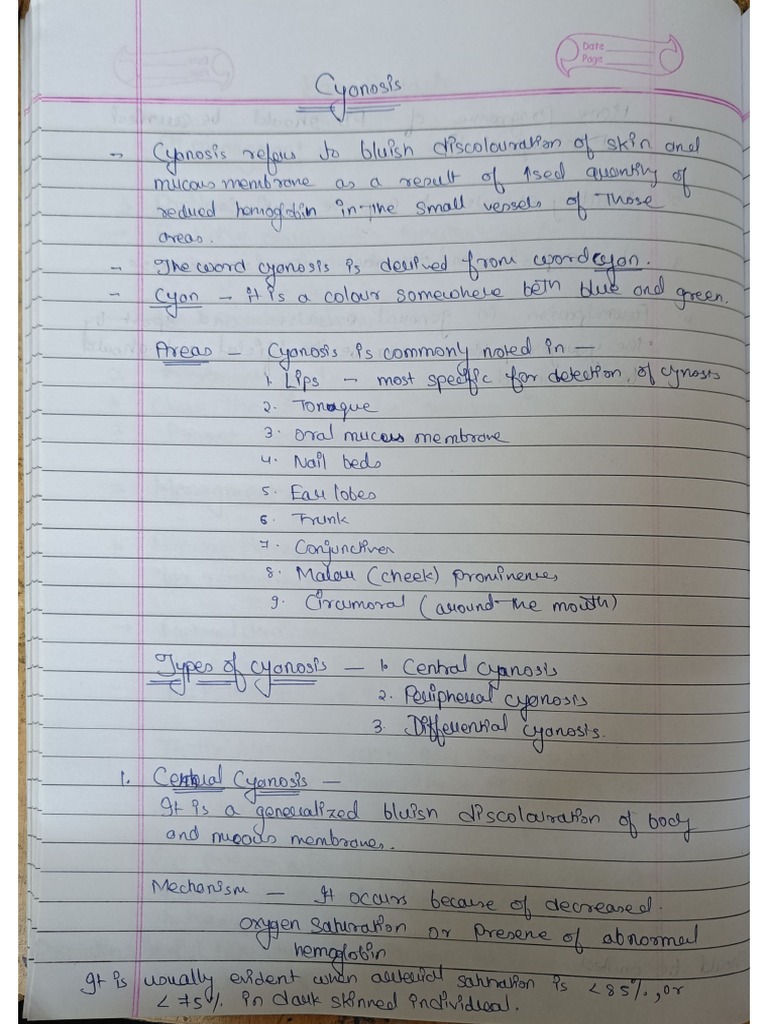 Date
Page
Cyanosis
- Cyanosis refers to bluish discolouration of skin and
mucous membrane as a result of ↑sed quantity of
reduced hemoglobin in the small vessels of those
areas.
- The word cyanosis is derived from word cyan.
- Cyan - it is a colour somewhere betn blue and green.
Areas - Cyanosis is commonly noted in -
1. Lips - most specific for detection of cynosis
2. Tonague
3. Oral mucous membrane
4. Nail beds
5. Ear lobes
6. Trunk
7. Conjunctiver
8. Malar (cheek) prominenes
9. Circumoral (around the mouth)
Types of cyanosis - 1. Central cyanosis
2. Peripheral cyanosis
3. Differential cyanosis.
1. Central Cyanosis -
It is a generalized bluish discolouration of body
and mucous membranes.
Mechanism - It occurs because of decreased
oxygen saturation or presene of abnormal
hemoglobin
It is usually evident when arterial saturation is <85%, or
<75% in dark skinned individual.